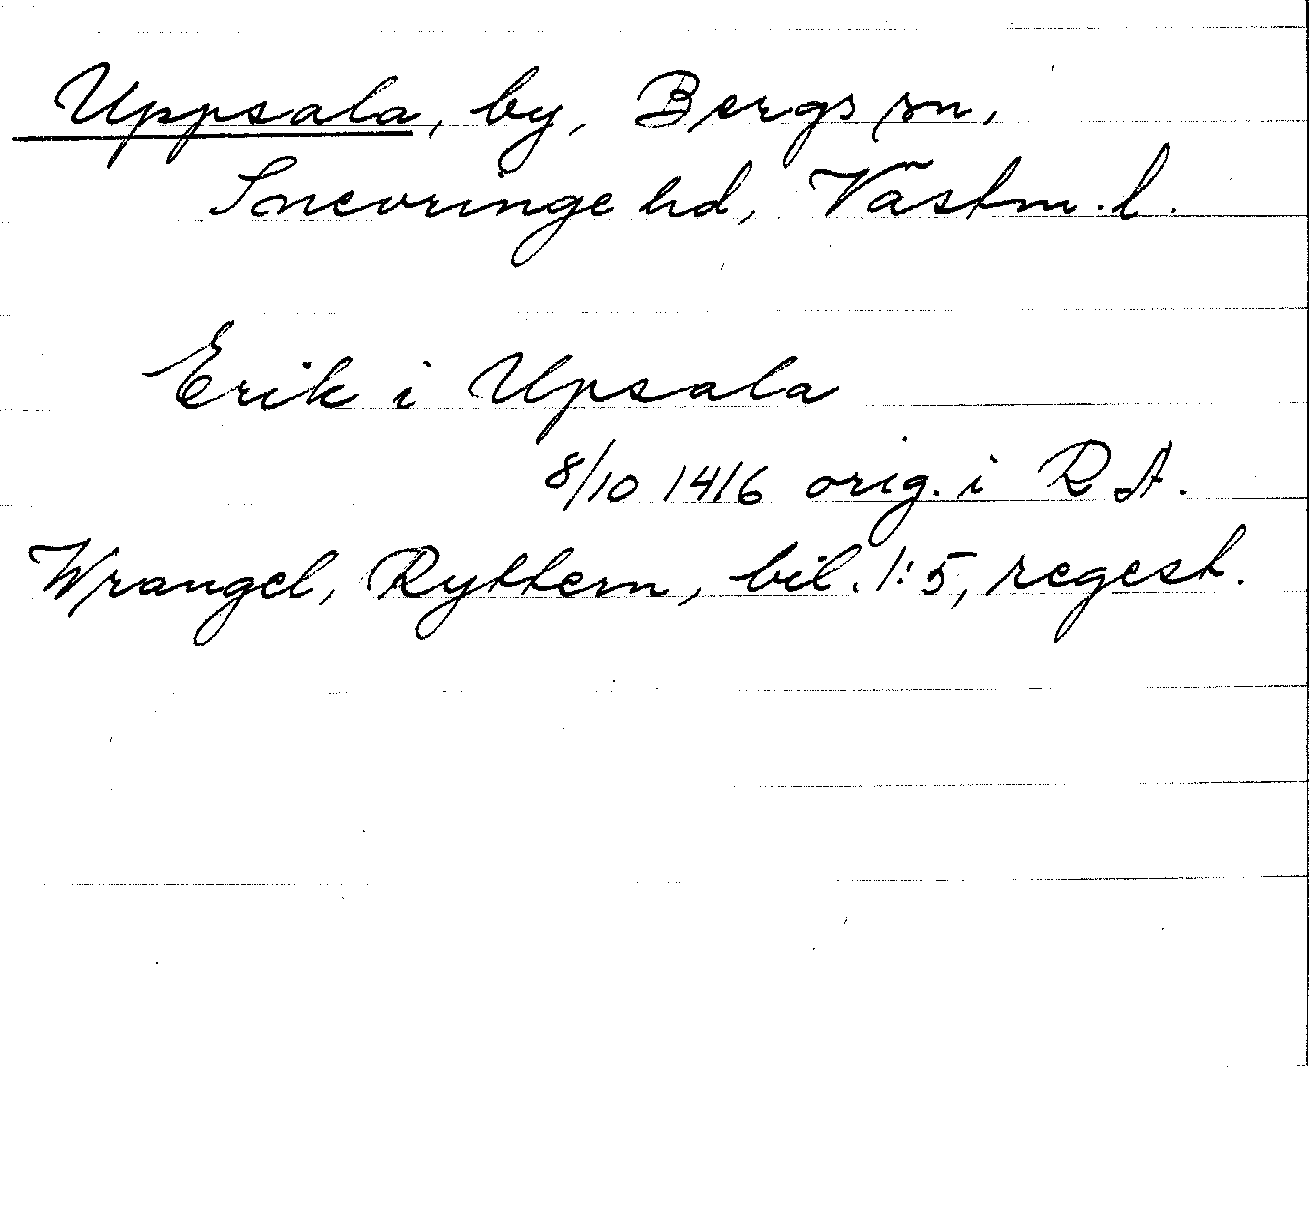 Uppsala, by, Bergs sn,
Snevringe hd, Västm. l.
Erik i Upsala
8/10 1416 orig. i RA.
Wrangel, Ryttern, bil. 1:5, regest.